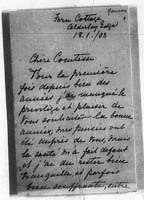 Fern Cottage
Alderley Edge
18.1./03
Chère Comtesse
Pour la première
fois depuis bien des
années j'ai manqué le
privilège et plaisir de
vous souhaiter la bonne
année, mes pensées ont
été auprès de vous, mais
la santé m'a fait défaut
et j'ai du rester bien
tranquille et parfois
bien souffrante, entre